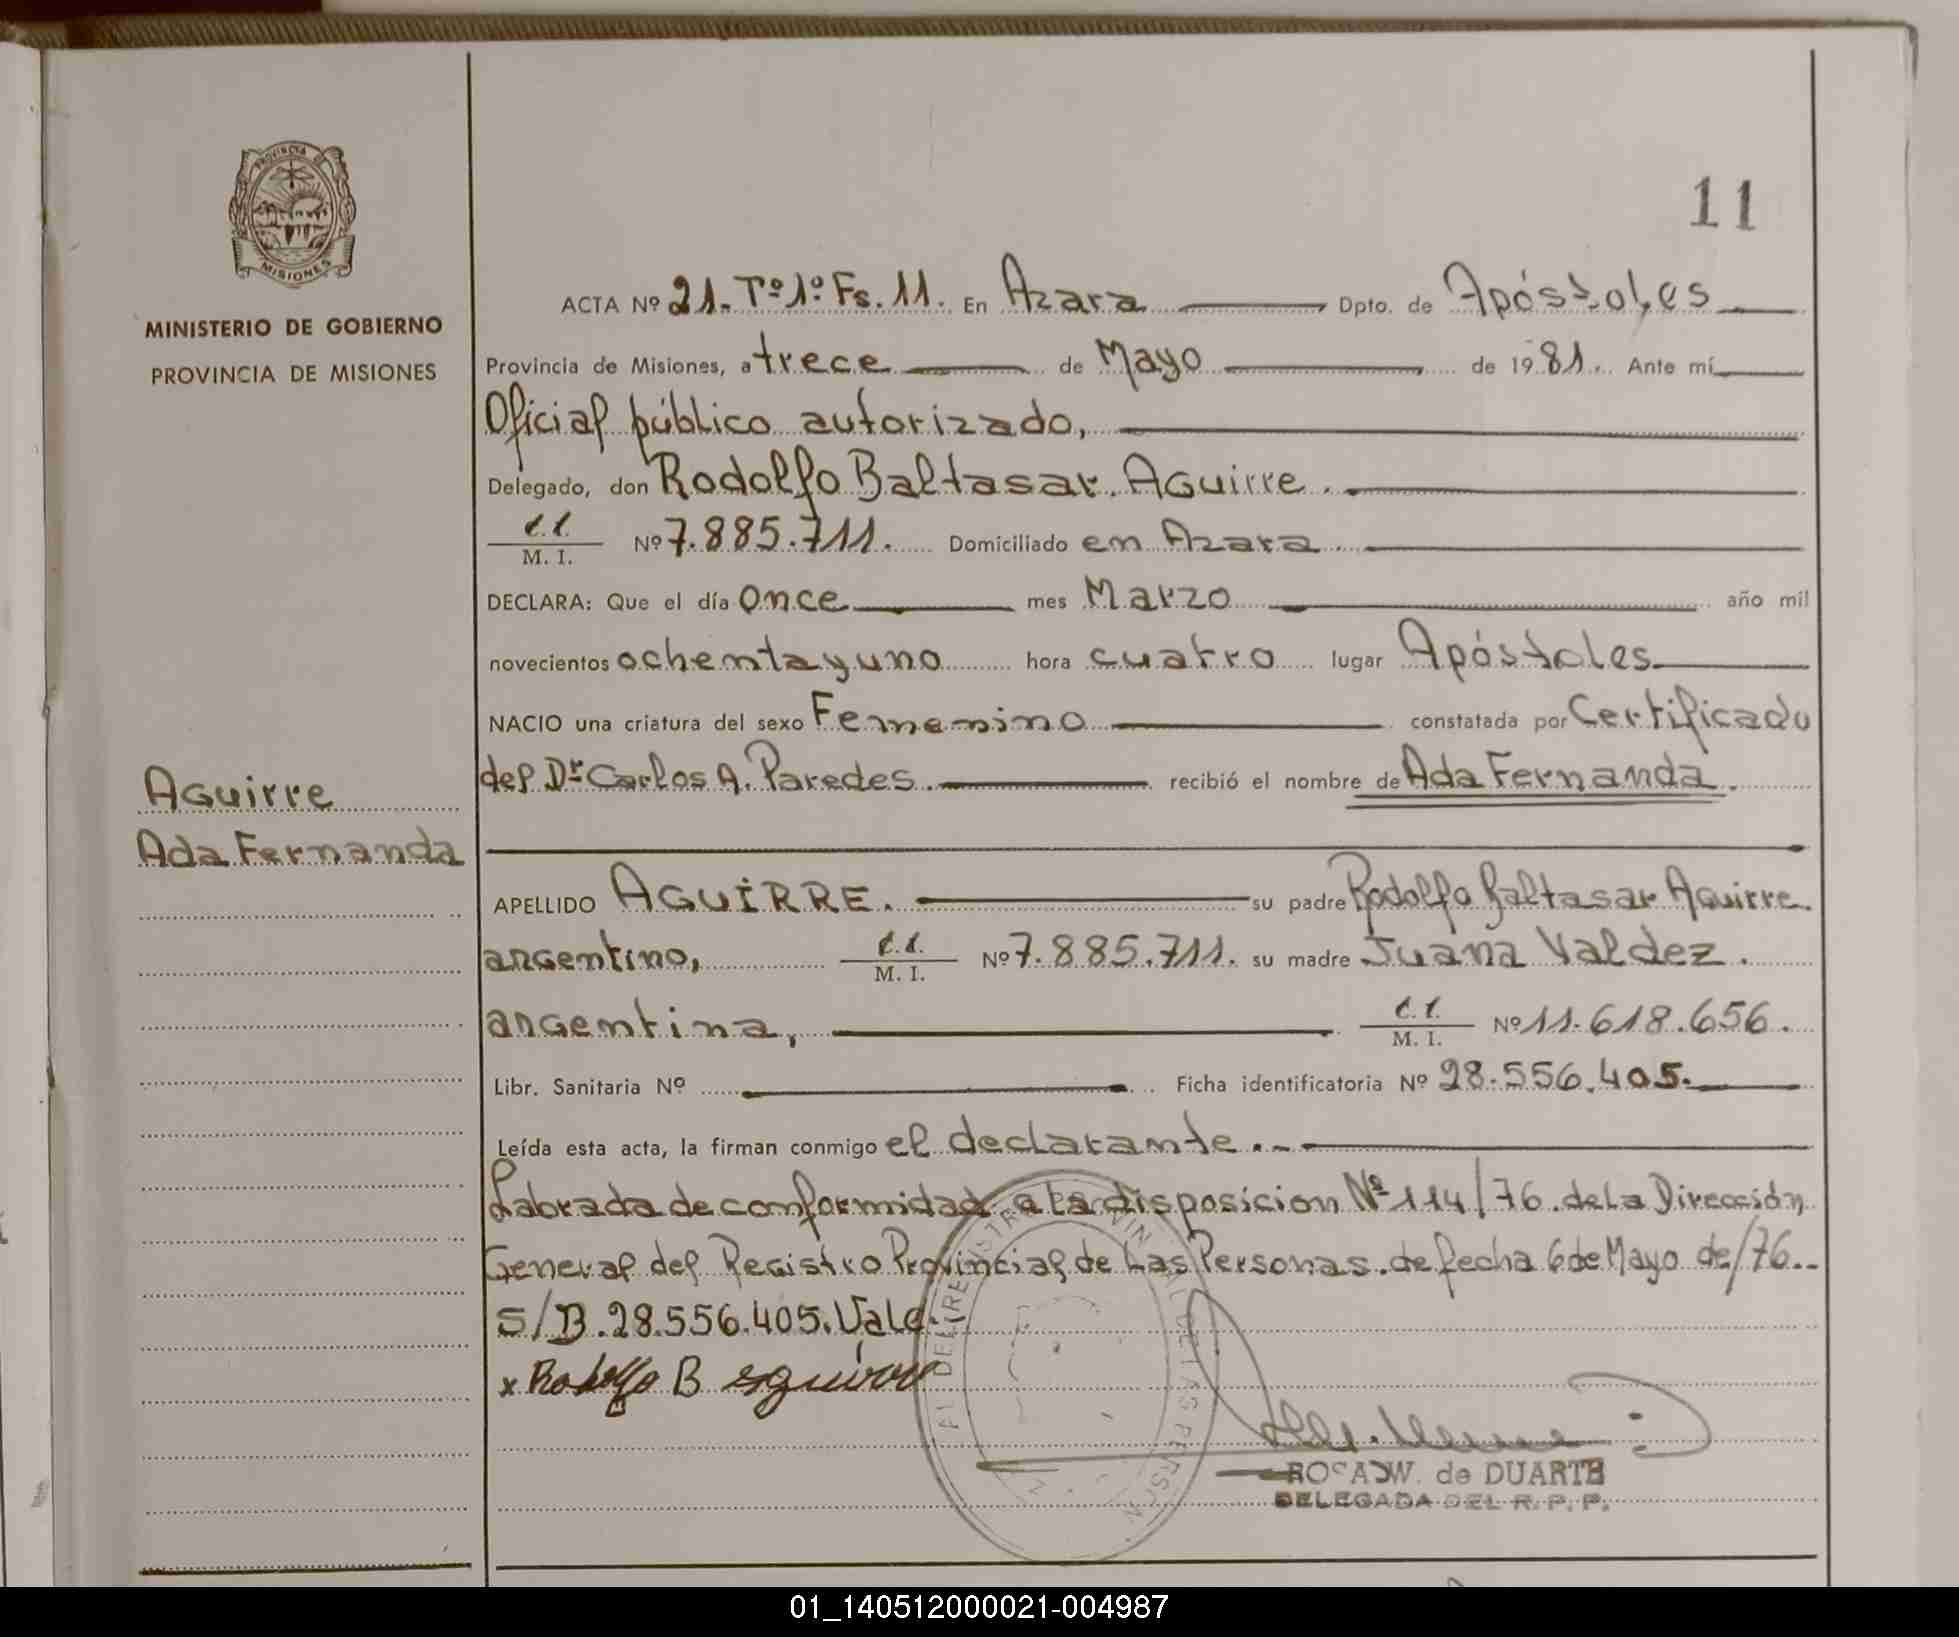 11
PROVINCIA DE
MISIONES
MINISTERIO DE GOBIERNO
PROVINCIA DE MISIONES
Aguirre
Ada Fernanda
ACTA Nº 21. Tº 1º Fs. 11. En Azara Dpto. de Apóstoles
Provincia de Misiones, a trece de Mayo de 1981. Ante mí
Oficial público autorizado,
Delegado, don Rodolfo Baltasar Aguirre.
C.I.
M. I. Nº 7.885.711. Domiciliado en Azara.
DECLARA: Que el día once mes Marzo año mil
novecientos ochentayuno hora cuatro lugar Apóstoles
NACIO una criatura del sexo Femenino constatada por Certificado
del Dr Carlos A. Paredes. recibió el nombre de Ada Fernanda.
APELLIDO AGUIRRE. su padre Rodolfo Baltasar Aguirre.
argentino, C.I. M. I. Nº 7.885.711. su madre Juana Valdez.
argentina, C.I. M. I. Nº 11.618.656.
Libr. Sanitaria Nº Ficha identificatoria Nº 28.556.405.
Leída esta acta, la firman conmigo el declarante.-
Labrada de conformidad a la disposicion Nº 114/76 de la Dirección
General del Registro Provincial de Las Personas. de fecha 6 de Mayo de/76..
S/B.28.556.405. Vale.
x Rodolfo B aguirre
ROSA W. de DUARTE
DELEGADA DEL R. P. P.
01_140512000021-004987